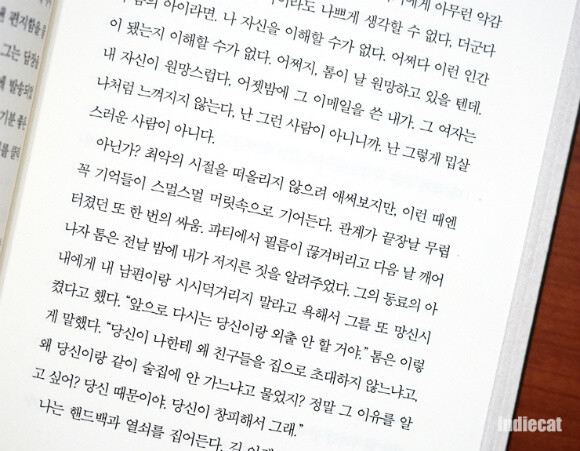 에게 아무런 악감
이라도 나쁘게 생각할 수 없다. 더군다
의 아이라면. 나 자신을 이해할 수가 없다. 어쩌다 이런 인간
이 됐는지 이해할 수가 없다. 어쩌지, 톰이 날 원망하고 있을 텐데.
내 자신이 원망스럽다, 어젯밤에 그 이메일을 쓴 내가. 그 여자는
나처럼 느껴지지 않는다, 난 그런 사람이 아니니까. 난 그렇게 밉살
스러운 사람이 아니다.
아닌가? 최악의 시절을 떠올리지 않으려 애써보지만, 이런 때엔
꼭 기억들이 스멀스멀 머릿속으로 기어든다. 관계가 끝장날 무렵
터졌던 또 한 번의 싸움. 파티에서 필름이 끊겨버리고 다음 날 깨어
나자 톰은 전날 밤에 내가 저지른 짓을 알려주었다. 그의 동료의 아
내에게 내 남편이랑 시시덕거리지 말라고 욕해서 그를 또 망신시
켰다고 했다. “앞으로 다시는 당신이랑 외출 안 할 거야.” 톰은 이렇
게 말했다. “당신이 나한테 왜 친구들을 집으로 초대하지 않느냐고,
왜 당신이랑 같이 술집에 안 가느냐고 물었지? 정말 그 이유를 알
고 싶어? 당신 때문이야. 당신이 창피해서 그래.”
나는 핸드백과 열쇠를 집어든다.
편지함을
그는 담장
발송되었
기분 좋은
를 끌
indiecat